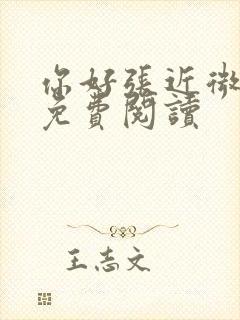 你好張近微
免費閱讀
王志文